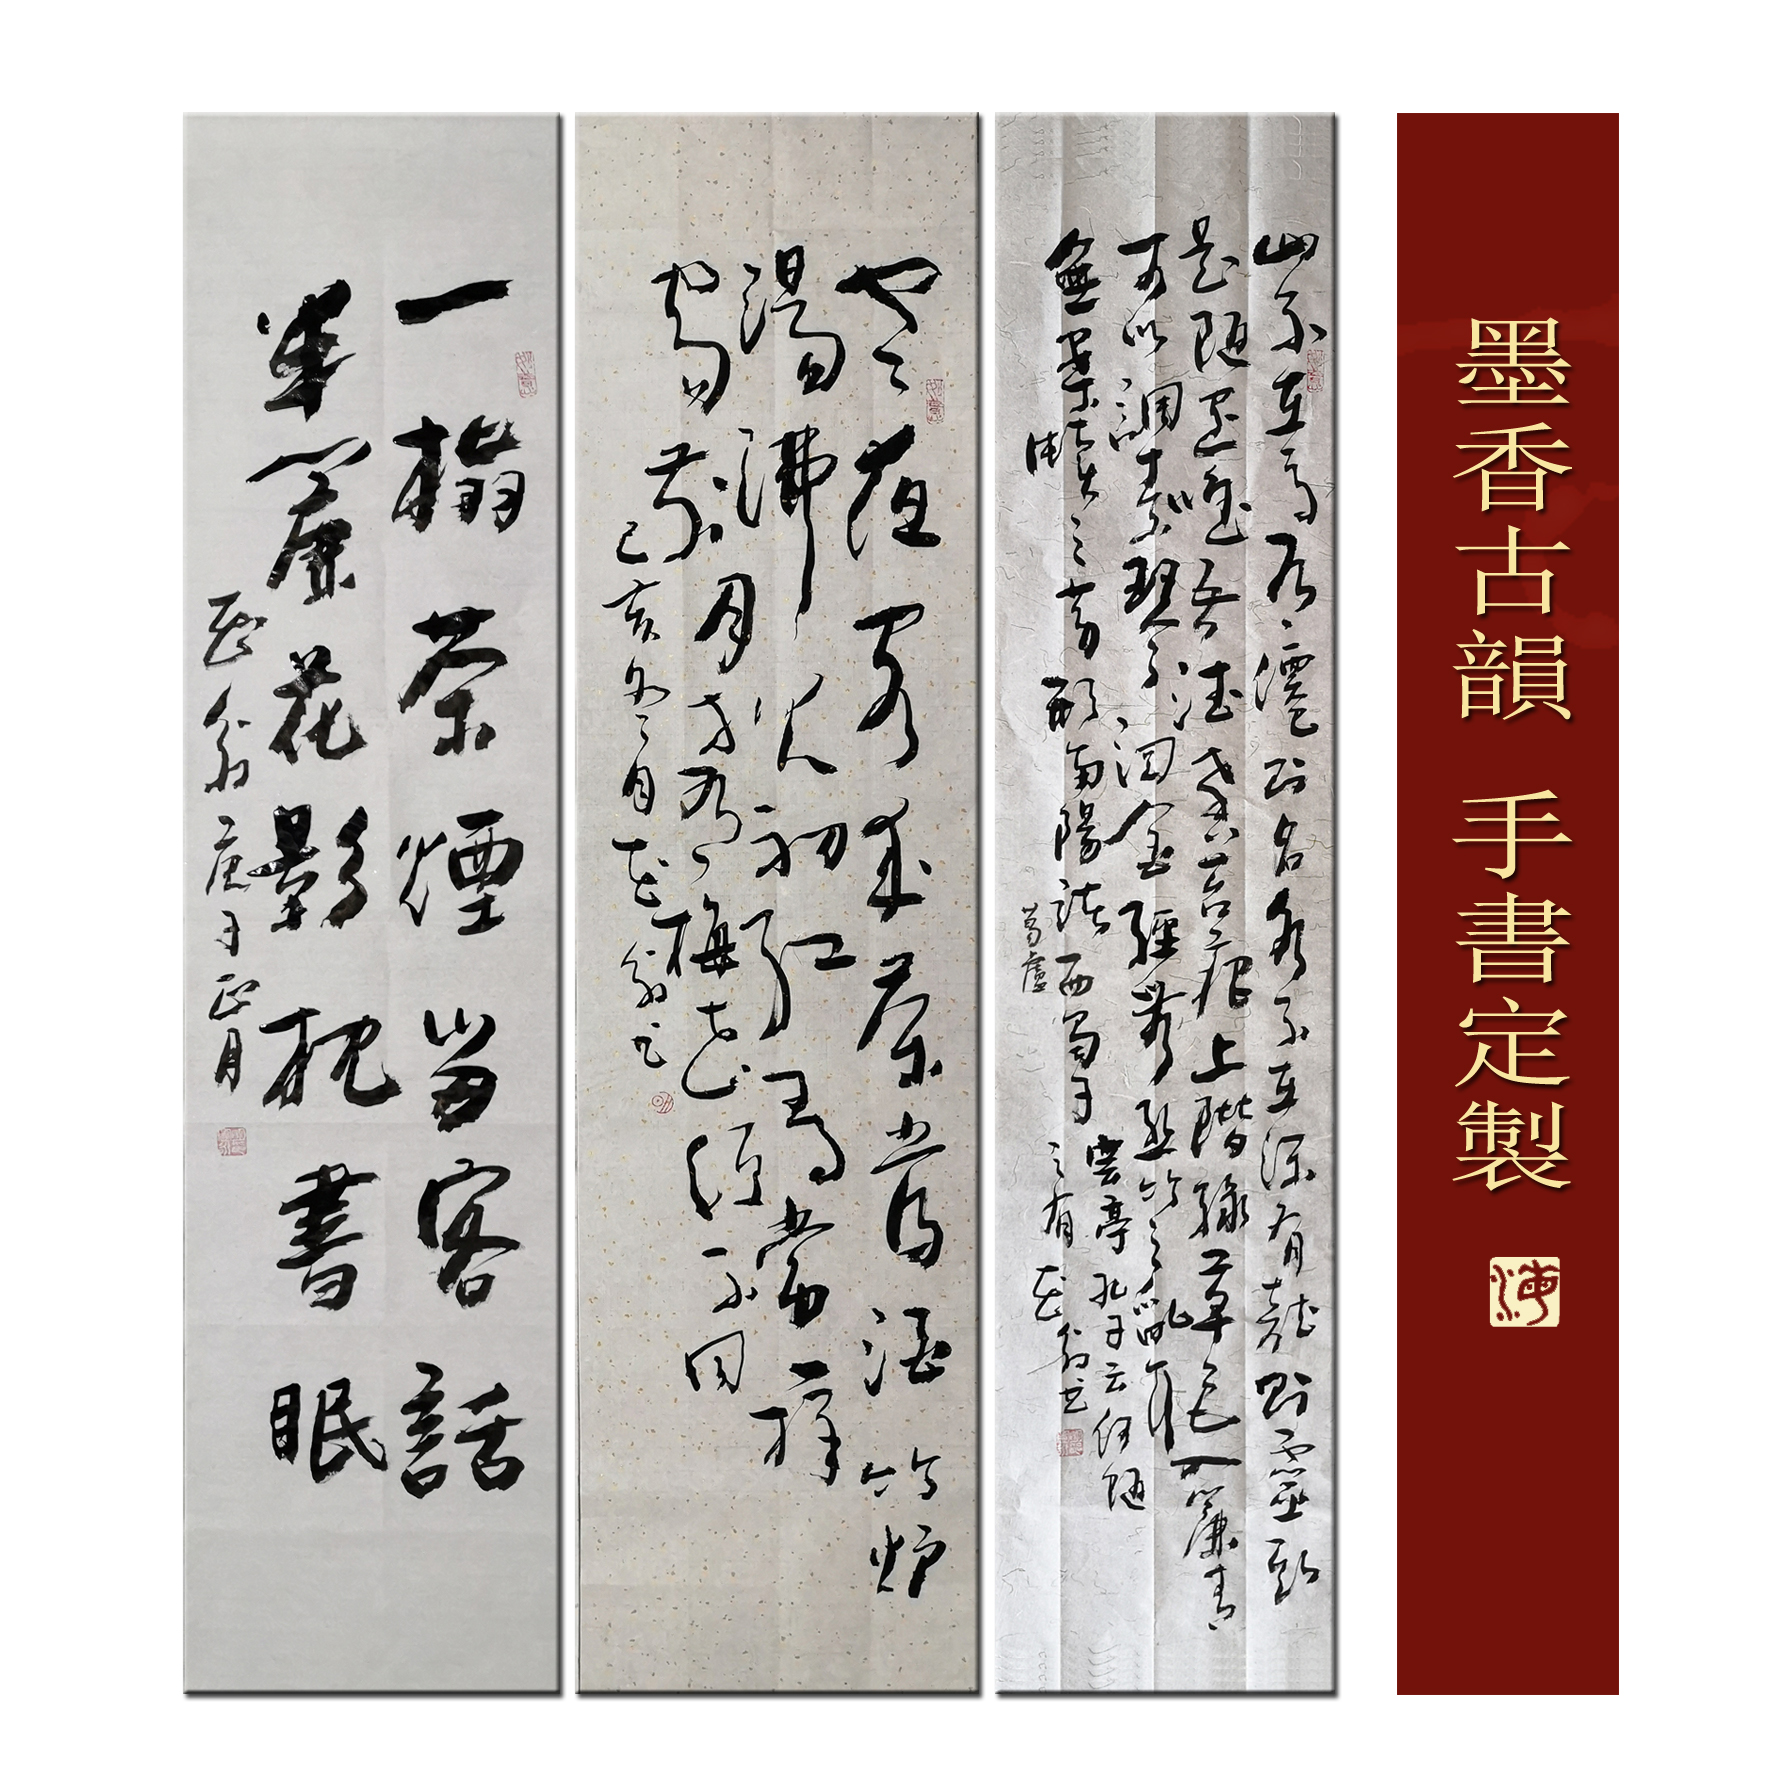 墨香古韻 手書定製
山不在高有僊則名水不在深有龍則靈斯
是陋室惟吾德馨苔痕上階綠草色入簾青
可以調素琴閱金經無絲竹之亂耳
無案牘之勞形南陽諸西蜀子
雲亭孔子云何陋
之有花翁书
葛廬
寒夜客來茶當酒竹爐
湯沸火初紅尋常一樣
窗前月才有梅花便不同
己亥冬月花翁书
一榻茶煙留客話
半簾花影枕書眠
翁庚子正月